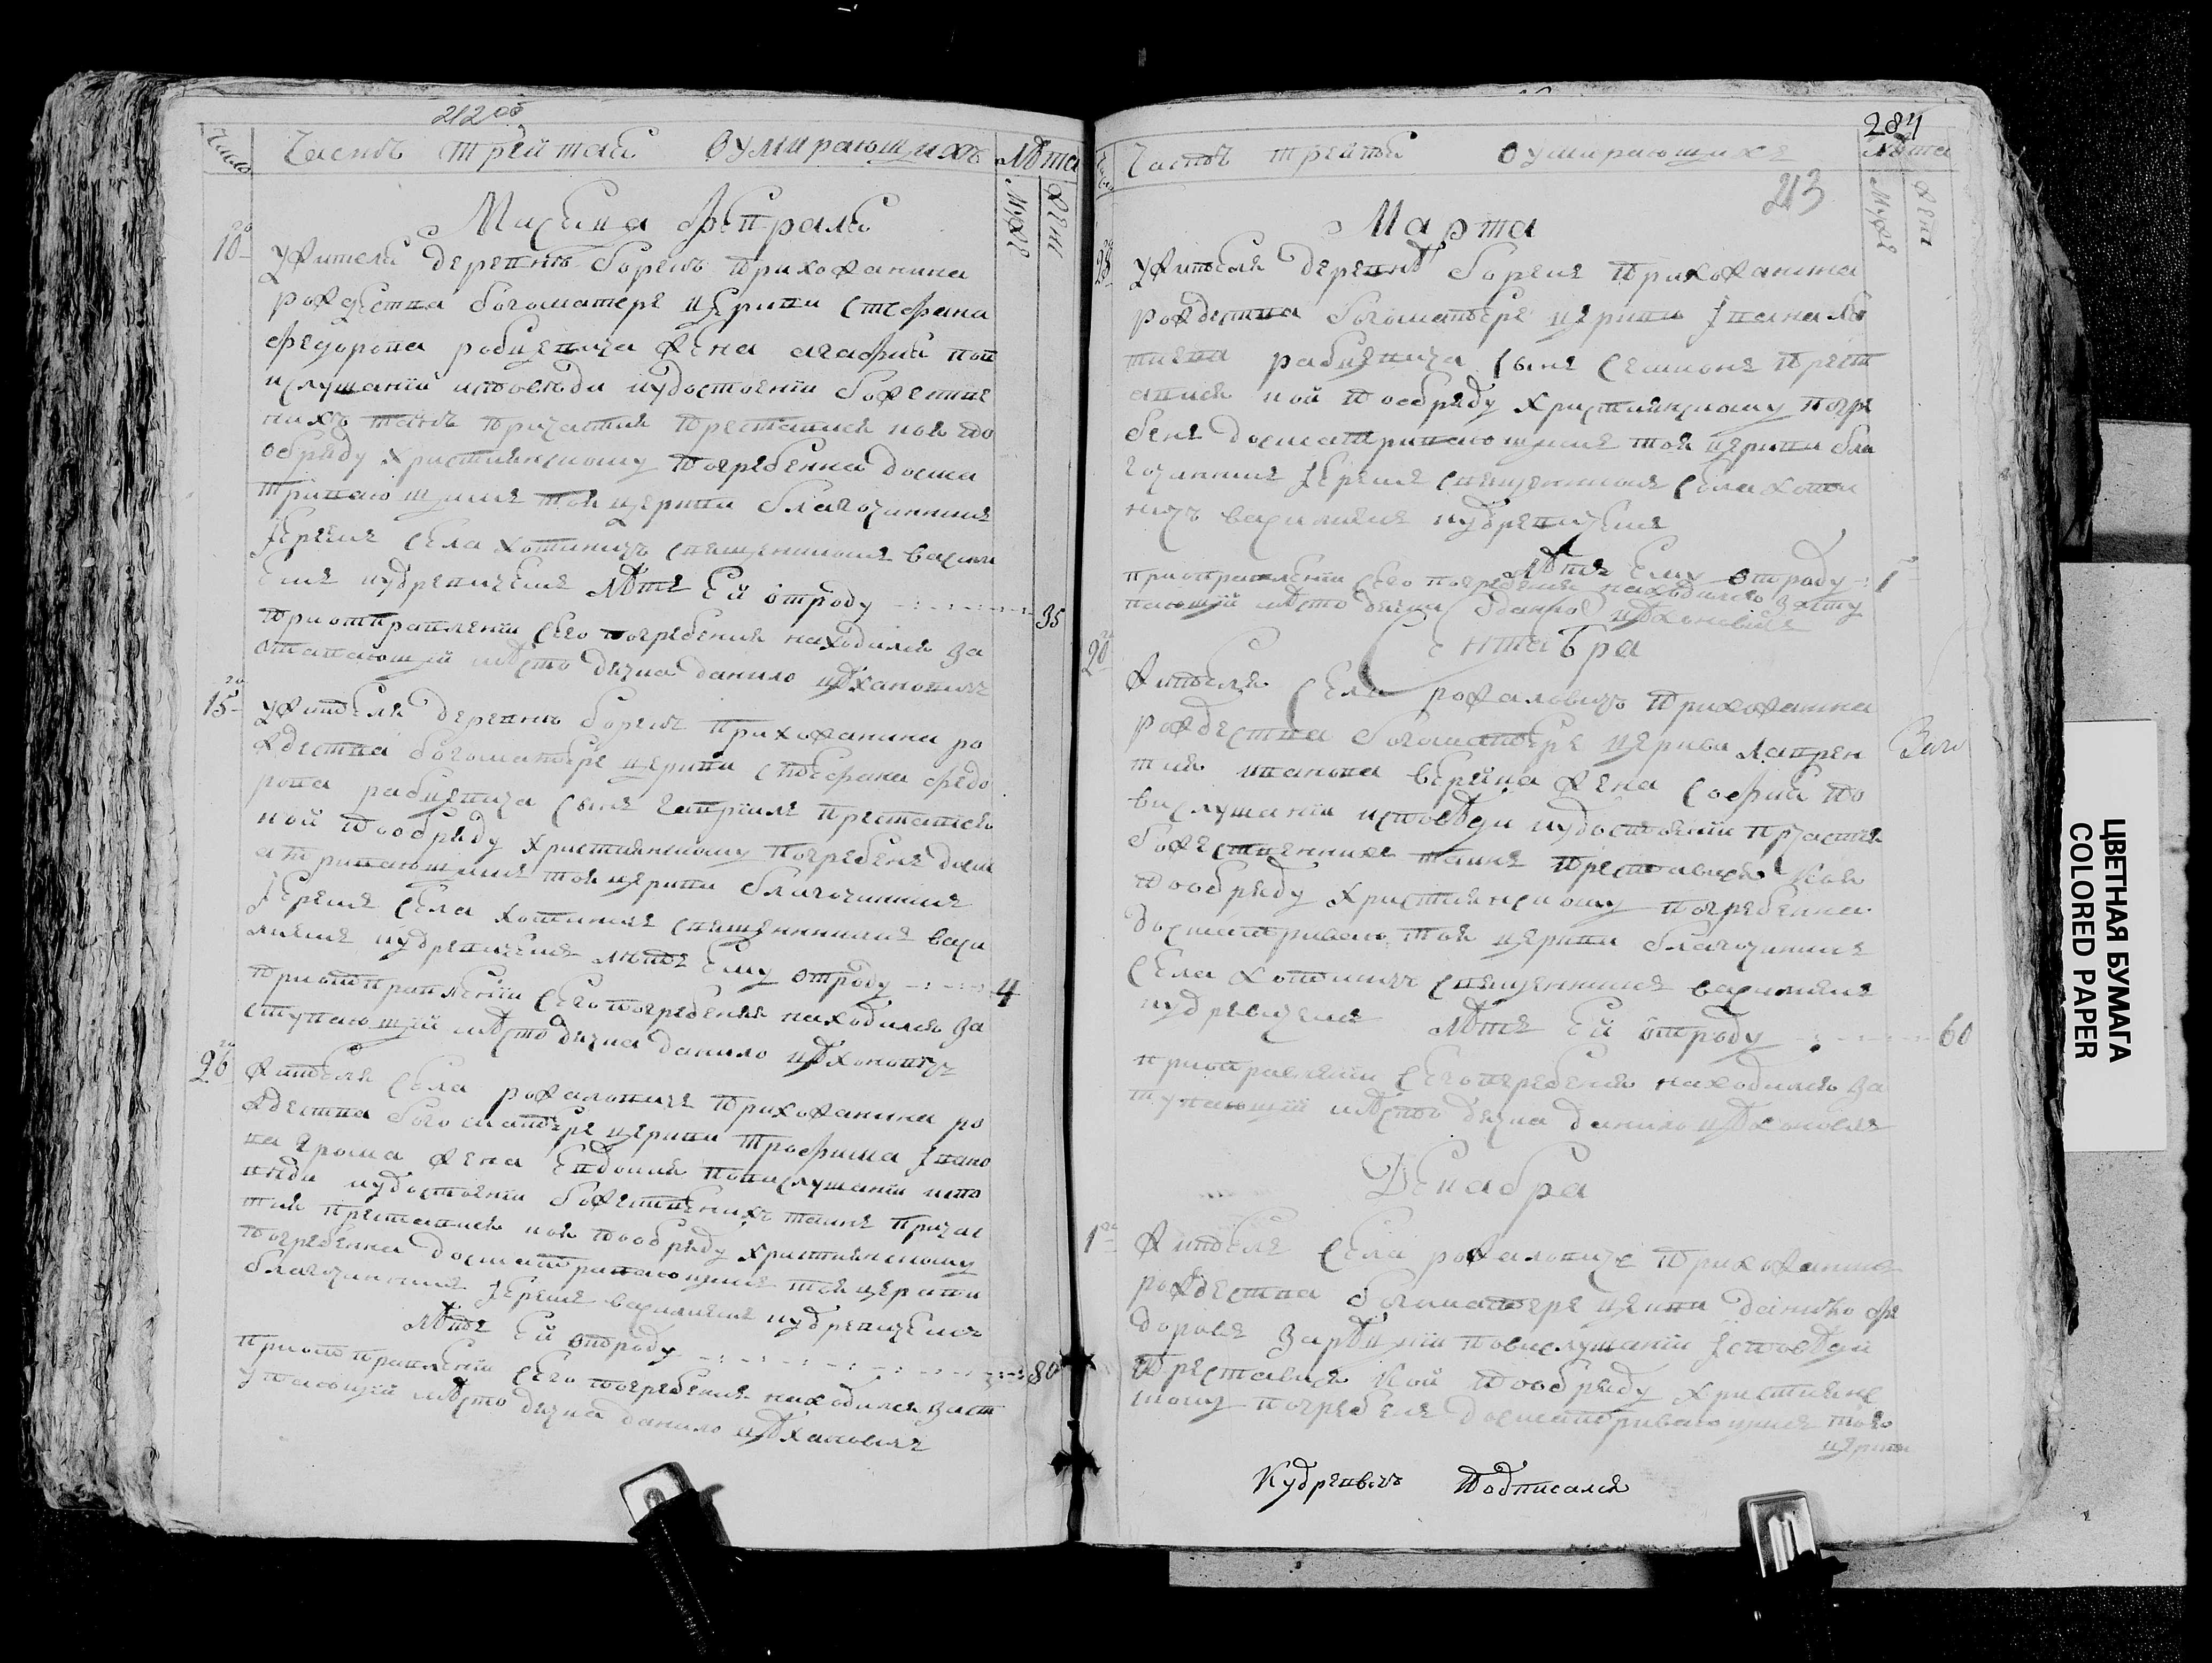 212 об
Число Часть третая О умирающихъ Лѣта
Муже Жен
Месеца февраля
10
У жителя деревнѣ борень прихожанина
рождества богоматере церкви стефана
федорова робцевича жена агафия повы
слушанїи исповеди иудостоенїи божестве
нихъ таинъ причастия преставися коя по
обряду християнскому погребенна досма
тривающимъ тоя церкви благочиннимъ
Іереемъ села хотиничъ священникомъ васили
емъ кудревичемъ лѣтъ Ей отроду 35
приотправленїи сего погребения находился за
ставающїй мѣсто дячка данило цѣхановичъ
15
У жителя деревнѣ боренъ прихожанина ро
ждества богоматере церкви стефана федо
рова рабцевича сынъ гавриилъ преставися
кой пообряду християнскому погребенъ досм
атривающимъ тоя церкви благочиннимъ
Іереемъ села хотиничъ священникомъ васи
лиемъ кудревичемъ лѣтъ Ему отроду 4
приотправленїи сего погребения находился за
ступающїй мѣсто дячка данило цѣхановичъ
26
жителя села рожаловичъ прихожанина ро
ждества богоматере церкви трофима Івано
ва жена Евдокия повислушанїи испо
иудостоенїи божественихъ таинъ причас
тия преставися коя пообряду християнскому
погребенна досматривающимъ тоя церкви
благочиннимъ Іереемъ василиемъ кудревичемъ
лѣтъ Ей отроду 80
приотправленїи сего погребения находился заст
упающїй мѣсто дячка данило цѣхановичъ
284
Часть третая О умирающихъ Лѣта
Муже Жен
213
Марта
28
У жителя деревнѣ боренъ прихожанина
рождества богоматере церкви Івана
рабцевича сынъ семионъ прест
ависи кой пообряду християнскому погре
бенъ досматривающимъ тоя церкви бла
гочиннимъ Іереемъ священникомъ села хоти
ничъ василиемъ кудревичемъ
лѣтъ Ему отроду 1
приотправленїи сего погребения находился засту
пающїй мѣсто дячка данило цѣхановичъ
Сентабра
20
жителя села рожаловичъ прихожанина
рождества богоматере церкви лаврен
тия иванова жена софия по
вислушанїи исповѣди иудостоенїи причастия
божественнихъ таинъ преставися коя
пообряду християнскому погребенна
досматриваю тоя церкви благочиннимъ
села хотиничъ священникомъ василиемъ
кудревичемъ лѣтъ Ей отроду 60
приотправленїи сего погребения находился за
тупающїй мѣсто дячка данило цѣхановичъ
Декабра
1
житель села рожаловичъ прихожанинъ
рождества богоматере церкви данило фе
доровъ повислушанїи Ісповѣди
преставися кой пообряду християнс
кому погребенъ досматривающимъ тоя
церкви
Кудревичъ подписался
ЦВЕТНАЯ БУМАГА
COLORED PAPER